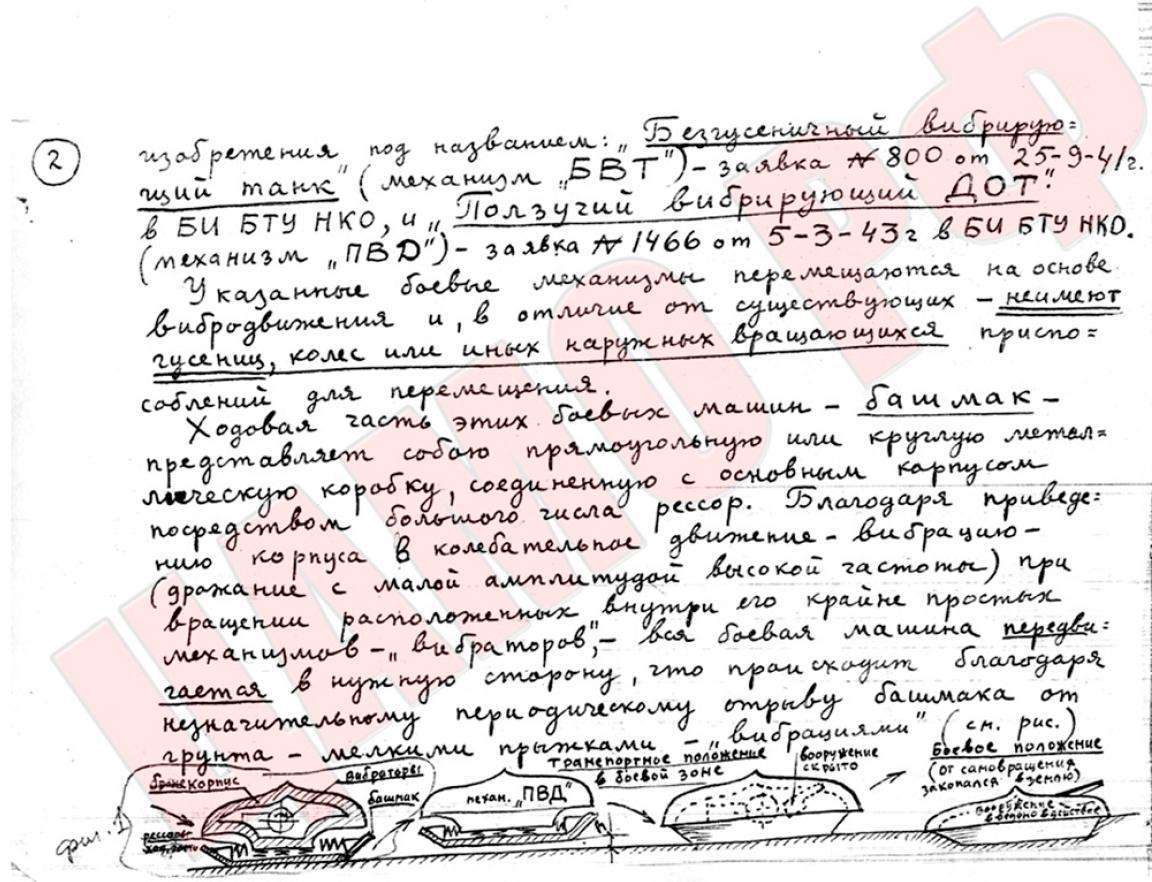 2
изобретения под названием: „Безгусеничный вибрирую=
щий танк" (механизм „БВТ") – заявка № 800 от 25-9-41г.
в БИ БТУ НКО, и „Ползучий вибрирующий ДОТ".
(механизм „ПВД") – заявка № 1466 от 5-3-43г в БИ БТУ НКО.
Указанные боевые механизмы перемещаются на основе
вибродвижения и, в отличие от существующих – неимеют
гусениц, колес или иных наружных вращающихся приспо=
соблений для перемещения.
Ходовая часть этих боевых машин – башмак –
представляет собою прямоугольную или круглую метал=
лическую коробку, соединенную с основным корпусом
посредством большого числа рессор. Благодаря приведе=
нию корпуса в колебательное движение – вибрацию –
(дрожание с малой амплитудой высокой частоты) при
вращении расположенных внутри его крайне простых
механизмов – „вибраторов", – вся боевая машина передви=
гается в нужную сторону, что происходит благодаря
незначительному периодическому отрыву башмака от
грунта – мелкими прыжками – „вибрациями" (см. рис.)
фиг. 1
бронекорпус
Вибраторы
башмак
рессоры
механ. „ПВД"
транспортное положение
в боевой зоне
вооружение
скрыто
Боевое положение
(от самовращения
закопался в землю)
вооружение –
ЦАМО РФ